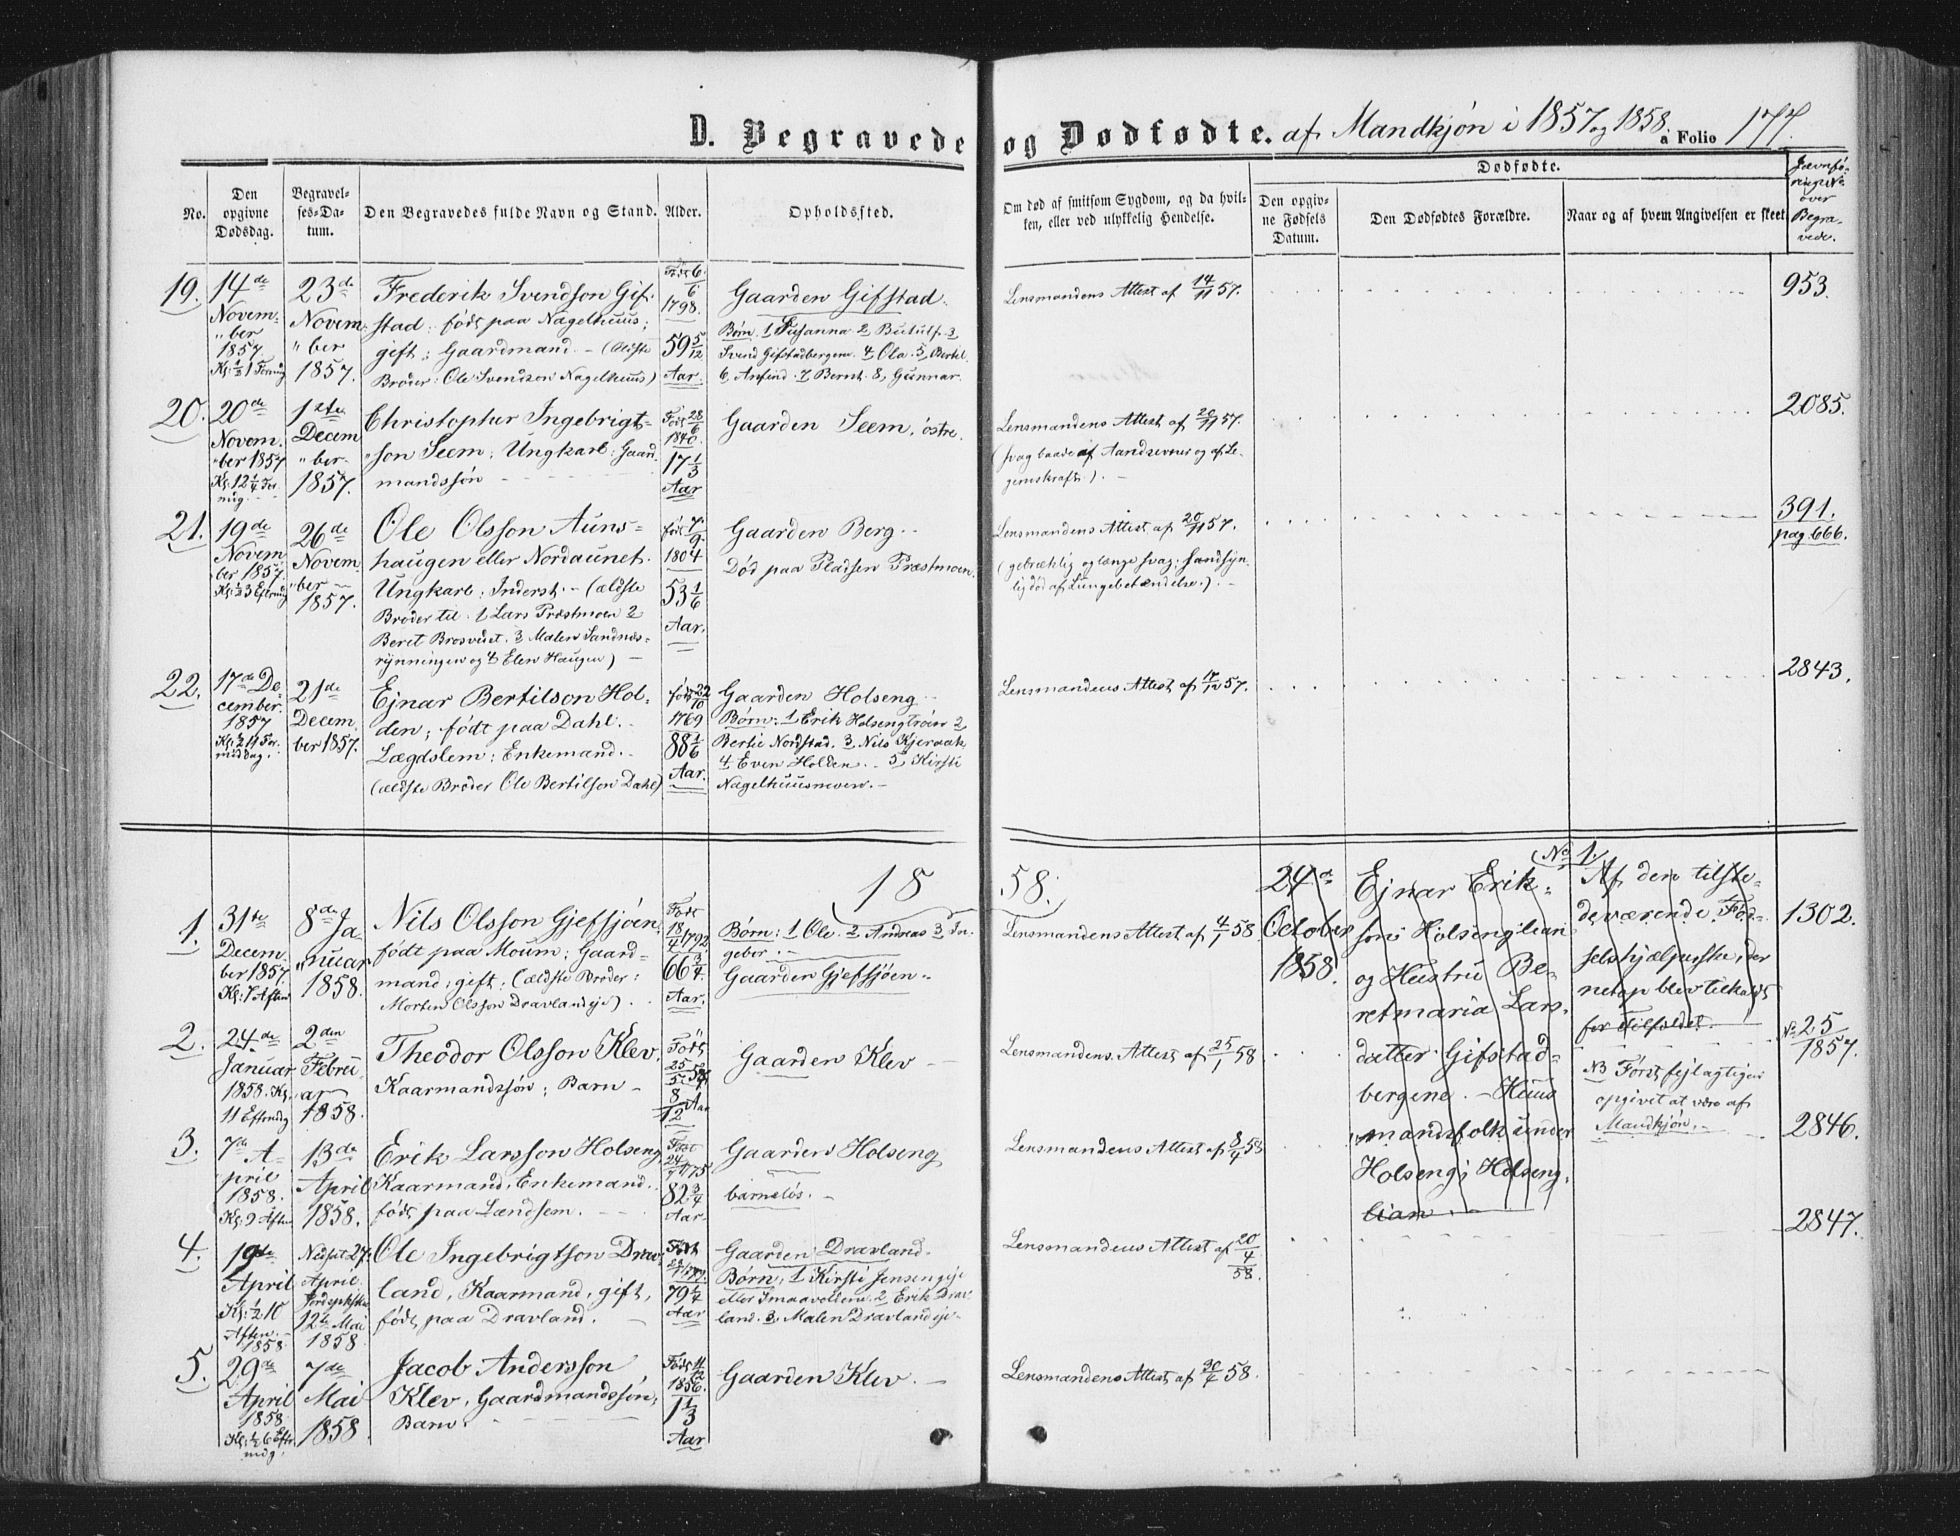 D. Begravede og Dødfødte. af Mandkjøn i 1857 og 1858. a Folio 177.
No.
Den opgivne Dødsdag.
Begravelses-Datum.
Den Begravedes fulde Navn og Stand.
Alder.
Opholdssted.
Om død af smitsom Sygdom, og da hvilken, eller ved ulykkelig Hendelse.
Dødfødte.
Den opgivne Fødsels Datum.
Den Dødfødtes Forældre.
Naar og af hvem Angivelsen er skeet.
JævnføringsNo. over Begravede.
19.
14de
Novem-
"ber
1857.
Kl: ½1 Formdg
23de
Novem
"ber
1857.
Frederik Svendson Gif-
stad: født paa Nagelhuus;
gift; Gaardmand. - (Ældste
Broder: Ole Svendson Nagelhuus)
Født 6/6
1798.
59 5/12
Aar.
Gaarden Gifstad.
Børn. 1 Susanna 2 Butulf. 3
Svend Gifstadbergene. 4 Ola. 5 Bertel
6 Anfind. 7 Bernt. 8 Gunnar.
Lensmandens Attest af 14/11 57.
953.
20.
20de
Novem.
"ber 1857
Kl: 12¼ For
mdg.
1ste
Decem
"ber
1857.
Christopher Ingebrigt-
"son Seem; Ungkarl: Gaard
mandssøn
Født 28/6
1840.
17 1/3
Aar
Gaarden Seem, østre.
Lensmandens Attest af 20/11 57.
(svag baade af Aandsevner og af Le-
gemskraft). -
2085.
21.
19de
Novem
ber 1857.
Kl: ½3 Eftermdg
26de
Novem
"ber
1857.
Ole Olsson Auns-
haugen eller Nordaunet.
Ungkarl; Inderst. - (ældste
Broder til. 1 Lars Præstmoen 2
Beret Brosvedet. 3 Malen Sandnæs-
rynningen og 4 Elen Haugen) -
født 7/9
1804
53 1/6
Aar.
Gaarden Berg.
Død paa Pladsen Præstmoen.
Lensmandens Attest af 20/11 57.
(gebrækelig og længe svag; Sandsyn
lig død af Lungebetændelse.). -
391.
pag. 666.
22.
17de De-
cember.
1857
Kl: ½11 For
middag.
21de
Decem
ber 1857.
Ejnar Bertilson Hol-
den; født paa Dahl.
Lægdslem: Enkemand.
(ældste Broder Ole Bertilson Dahl)
født 22/10
1769
88 1/6
Aar.
Gaarden Holseng
Børn: 1 Erik Holsengtrøen 2
Bertil Nordstad. 3 Nils Kjeraak
4 Even Holden. 5 Kirsti
Nagelhuusmoen. -
Lensmandens Attest af 17/12 57.
2843.
18 58.
1.
31te
Decem
ber 1857.
Kl: 7 Aften
8de Ja
"nuar
1858.
Nils Olsson Gjefsjøen
født paa Moum; Gaard-
mand; gift; (ældste Broder:
Morten Olsson Dravlandseje).
Født
18/4 1792
66 3/4
Aar.
Børn: 1 Ole. 2 Andreas 3 In-
geber. -
Gaarden Gjefsjøen.
Lensmandens Attest af 4/1 58.
24de
October
1858.
(No 1.)
Ejnar Erik-
son Holsenglian
og Hustru Be-
retmaria Lars-
datter Gifstad-
bergene. - Huus
"mandsfolk under
Holseng; Holseng-
lian.
Af den tilste-
deværende Fød-
selshjelperske, der
netop blev tilkaldt
for Tilfældet.
NB Først fejlagtigen
opgivet at være af
Mandkjøn.
1302.
2.
24de
Januar
1858. Kl.
11 Eftermdg
2den
Febru
ar
1858.
Theodor Olsson Klev.
Kaarmandssøn; Barn -
Født
25/5 57
8/12 Aar
Gaarden Klev -
Lensmandens Attest af 25/1 58
No 25/1857.
3.
7de A-
pril
1858.
Kl: 9 Aften
13de
April
1858.
Erik Larsson Holseng
Kaarmand, Enkemand.
født paa Lændsem.
Født
24/7 1775
82 3/4
Aar.
Gaarden Holseng
barnløs. -
Lensmandens Attest af 8/4 58
2846.
4.
19de
April
Kl: ½10
Aften.
1858
Nedsat 27.
April.
Jordspaakast.
12te Mai
1858.
Ole Ingebrigtson Drav
land, Kaarmand, gift,
født paa Dravland. -
79 ¼
Aar
Gaarden Dravland.
Børn: 1 Kirsti Jensengeje
eller Smaavolden. 2 Erik Drav
land. 3 Malen Dravlandeje.
Lensmandens Attest af 20/4 58.
2847.
5.
29de
April
1858
Kl: ½6 Efter
mdg.
7de
Mai
1858.
Jacob Andersson
Klev, Gaardmandssøn;
Barn.
Født 11/12
1856.
1 1/3
Aar
Gaarden Klev. -
Lensmandens Attest af 30/4 58.